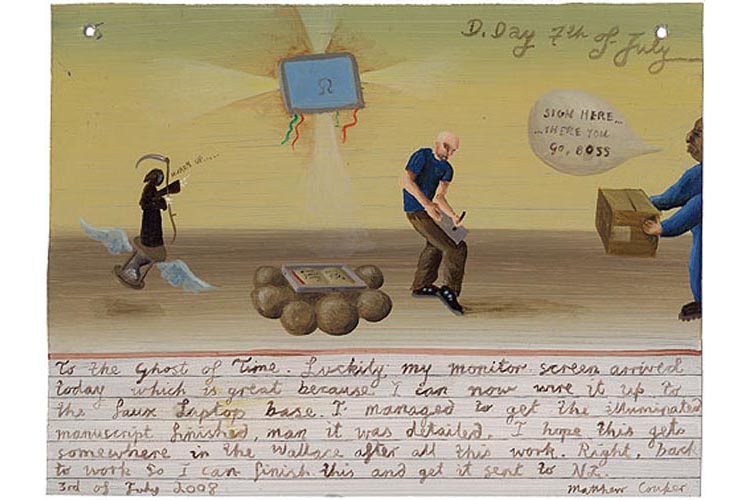 D. Day 7th of July
Ω
HURRY UP.....
SIGN HERE...
...THERE YOU
GO, BOSS
To the Ghost of Time. Luckily my monitor screen arrived
today which is great because I can now wire it up to
the faux Laptop base. I managed to get the illuminated
manuscript finished, man it was detailed. I hope this gets
somewhere in the Wallace after all this work. Right, back
to work so I can finish this and get it sent to NZ.
3rd of July 2008 Matthew Couper